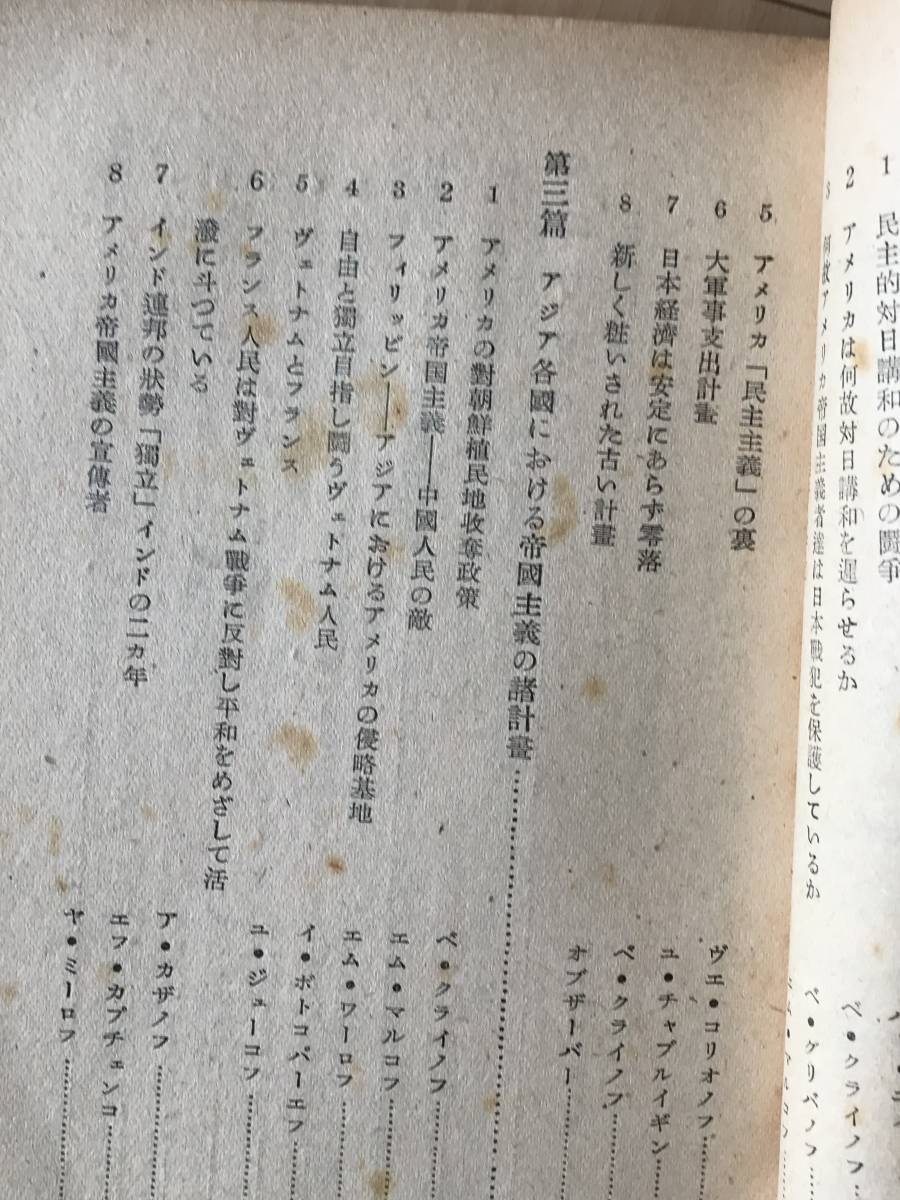 1 民主的対日講和のための闘争
2 アメリカは何故対日講和を遅らせるか ペ・クライノフ
アメリカ帝国主義者達は日本戦犯を保護しているか
5 アメリカ「民主主義」の裏 ヴエ・コリオノフ
6 大軍事支出計畫 ユ・チャプルイギン
7 日本経済は安定にあらず零落 ペ・クライノフ
8 新しく粧いされた古い計畫 オブザーバー
第三篇 アジア各國における帝國主義の諸計畫
1 アメリカの對朝鮮植民地收奪政策 ペ・クライノフ
2 アメリカ帝国主義――中國人民の敵 エム・マルコフ
3 フィリッピン――アジアにおけるアメリカの侵略基地 エム・ワーロフ
4 自由と獨立目指し闘うヴェトナム人民 イ・ボトコバーエフ
5 ヴェトナムとフランス ユ・ジューコフ
6 フランス人民は對ヴェトナム戰爭に反對し平和をめざして活
潑に斗つている ア・カザノフ
7 インド連邦の狀勢「獨立」インドの二カ年 エフ・カプチェンコ
8 アメリカ帝國主義の宣傳者 ヤ・ミーロフ